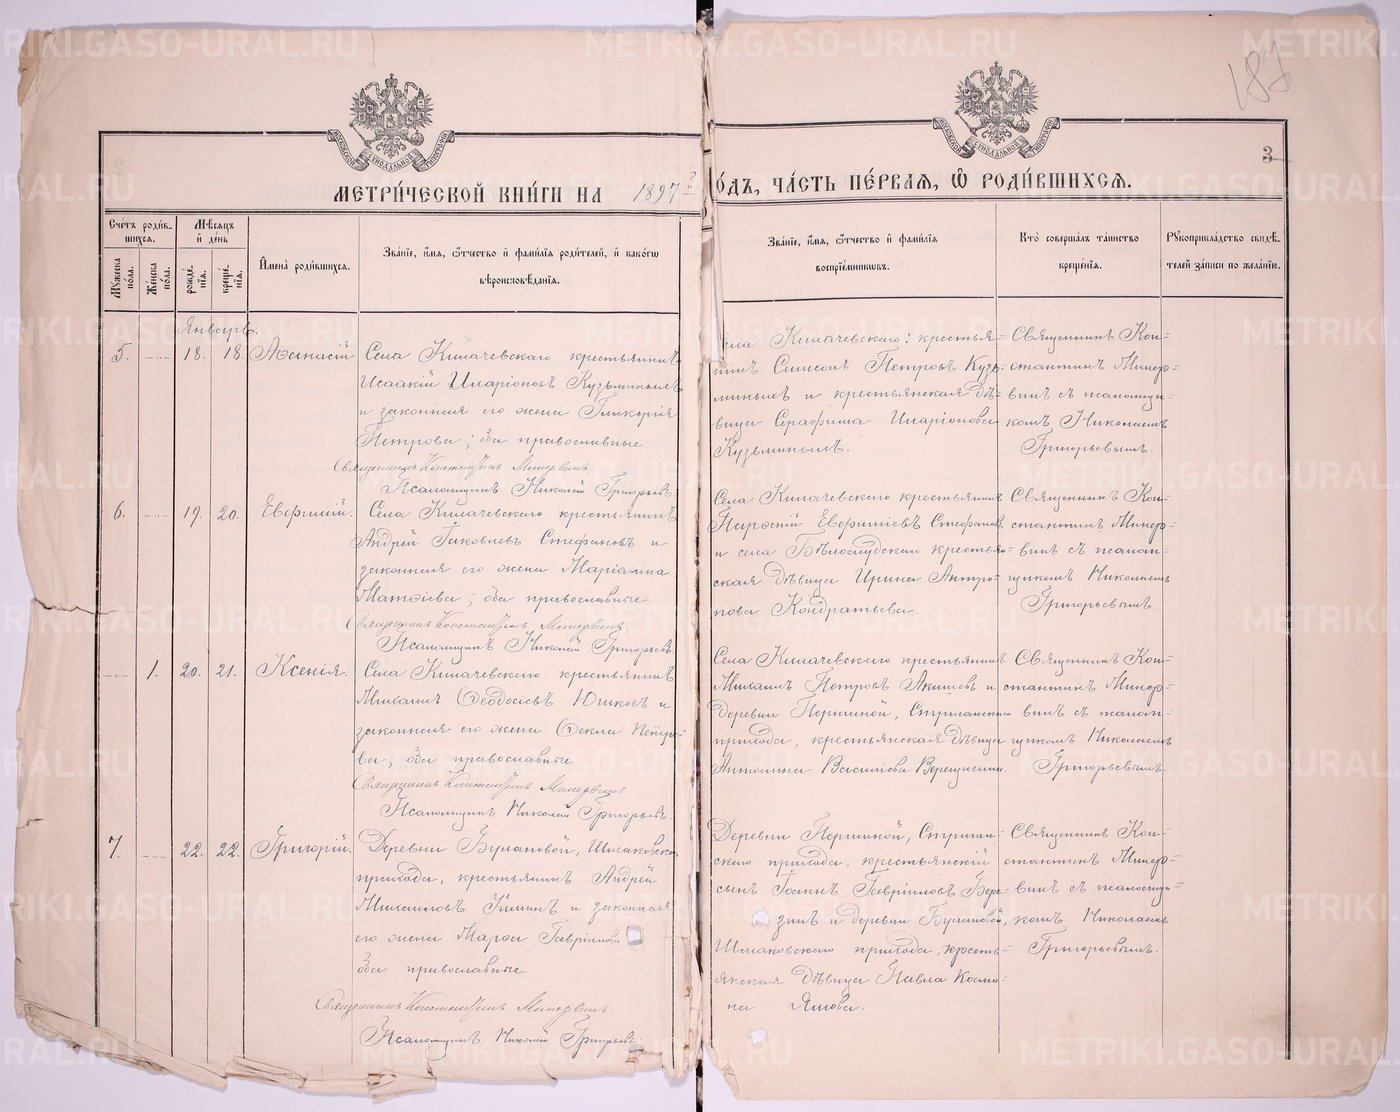 187
3
МОСКОВСКОЙ СѴНОДАЛЬНОЙ ТИПОГРАФІИ
МОСКОВСКОЙ СѴНОДАЛЬНОЙ ТИПОГРАФІИ
МЕТРИ́ЧЕСКОЙ КНИ́ГИ НА 1897 г
О́ДЪ, ЧА́СТЬ ПЕ́РВАѦ, Ѽ РОДИ́ВШИХСѦ.
Сче́тъ роди́в-
шихсѧ.
Мꙋ́жеска по́ла.
Же́нска по́ла.
Мѣ́сѧцъ
и҆ де́нь
рожде́-
нїѧ.
креще́-
нїѧ.
И҆мена̀ роди́вшихсѧ.
Зва́нїе, и҆́мѧ, ѻ҆́тчество и҆ фами́лїѧ роди́телей, и҆ како́гѡ
вѣроисповѣ́данїѧ.
Зва́нїе, и҆́мѧ, ѻ҆́тчество и҆ фами́лїѧ
воспрїе́мникѡвъ.
Кто̀ соверша́лъ та́инство
креще́нїѧ.
Рꙋкоприкла́дство свидѣ́-
телей за́писи по жела́нїю.
Январь.
5. 18. 18. Аѳанасій
Села Килачевскаго крестьянинъ
Исаакій Иларіоновъ Кузьминыхъ
и законная его жена Гликерія
Петрова; оба православные
Священникъ Константинъ Минервинъ.
Псаломщикъ Николай Григорьевъ.
Села Килачевскаго: крестья-
нинъ Симеонъ Петровъ Кузь-
миныхъ и крестьянская дѣ-
вица Серафима Иларіонова
Кузьминыхъ.
Священникъ Кон-
стантинъ Минер-
винъ съ псаломщи-
комъ Николаемъ
Григорьевымъ.
6. 19. 20. Евфимій.
Села Килачевскаго крестьянинъ
Андрей Іаковлевъ Стефановъ и
законная его жена Маріамна
Матѳіева; оба православные.
Священникъ Константинъ Минервинъ.
Псаломщикъ Николай Григорьевъ
Села Килачевскаго крестьянинъ
Парѳеній Евфиміевъ Стефановъ
и села Бѣлослудскаго крестьян-
ская дѣвица Ирина Антро-
пова Кондратьева.
Священникъ Кон-
стантинъ Минер-
винъ съ псалом-
щикомъ Николаемъ
Григорьевымъ.
1. 20. 21. Ксенія.
Села Килачевскаго крестьянинъ
Михаилъ Ѳеодосіевъ Югиковъ и
законная его жена Ѳекла Петро-
ва; оба православные
Священникъ Константинъ Минервинъ.
Псаломщикъ Николай Григорьевъ.
Села Килачевскаго крестьянинъ
Михаилъ Петровъ Акишевъ и
деревни Першиной, Стриганскаго
прихода, крестьянская дѣвица
Антонина Василіева Верещагина.
Священникъ Кон-
стантинъ Минер-
винъ съ псалом-
щикомъ Николаемъ
Григорьевымъ.
7. 22. 22. Григорій.
Деревни Булановой, Шмаковскаго
прихода, крестьянинъ Андрей
Михаиловъ и законная
его жена Марѳа Гавріилова
оба православные.
Священникъ Константинъ Минервинъ.
Псаломщикъ Николай Григорьевъ.
Деревни Першиной, Стриган-
скаго прихода, крестьянскій
сынъ Іоаннъ Гавріиловъ Бере-
зинъ и деревни Булановой,
Шмаковскаго прихода, кресть-
янская дѣвица Павла Косми-
на
Священникъ Кон-
стантинъ Минер-
винъ съ псаломщи-
комъ Николаемъ
Григорьевымъ.
METRIKI.GASO-URAL.RU